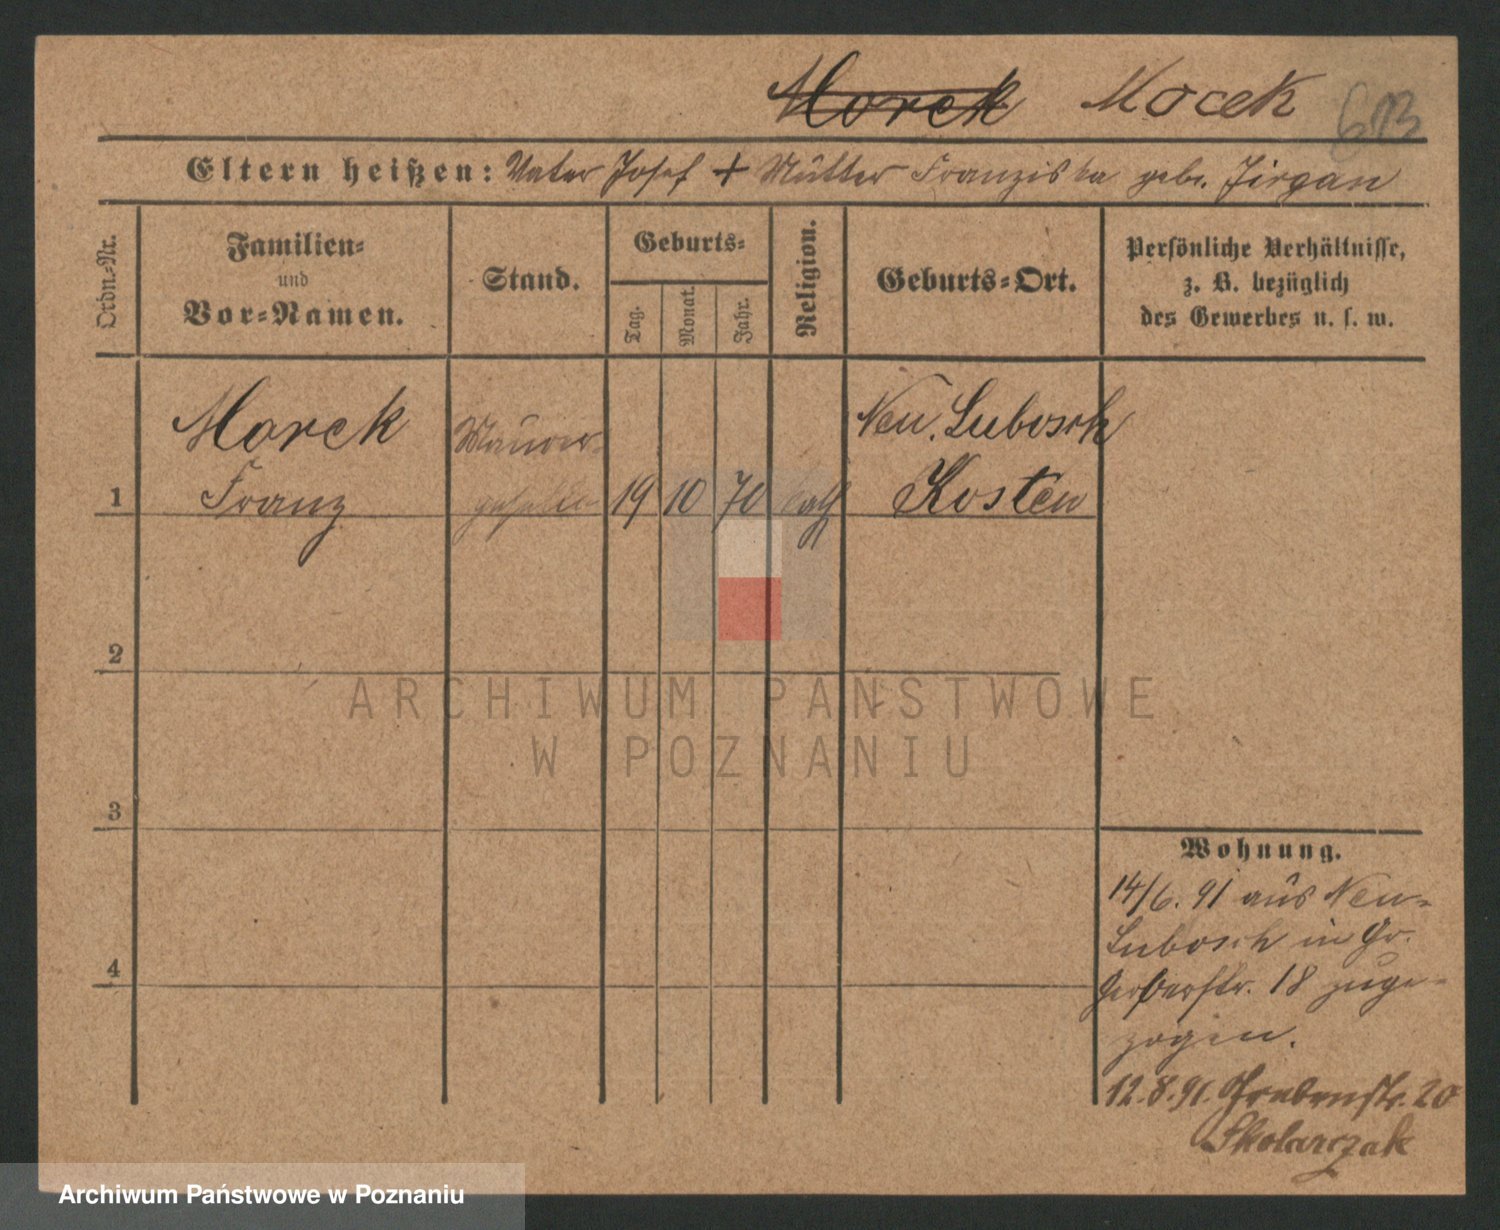 Morck Mocek 613
Eltern heißen: Vater Josef + Mutter Franziska geb. Jirgan
Ordn.-Nr.
Familien-
und
Vor-Namen.
Stand.
Geburts-
Tag.
Monat.
Jahr.
Religion.
Geburts-Ort.
Persönliche Verhältnisse,
z. B. bezüglich
des Gewerbes u. s. w.
Morck
Maurer-
Neu. Lubosch
1 Franz geselle 19 10 70 kath Kosten
2
ARCHIWUM PAŃSTWOWE
W POZNANIU
3
4
Wohnung.
14/6. 91 aus Neu-
Lubosch in Gr.
Gerberstr. 18 zuge-
zogen.
12.8.91. Grabenstr. 20
Skolarczak
Archiwum Państwowe w Poznaniu